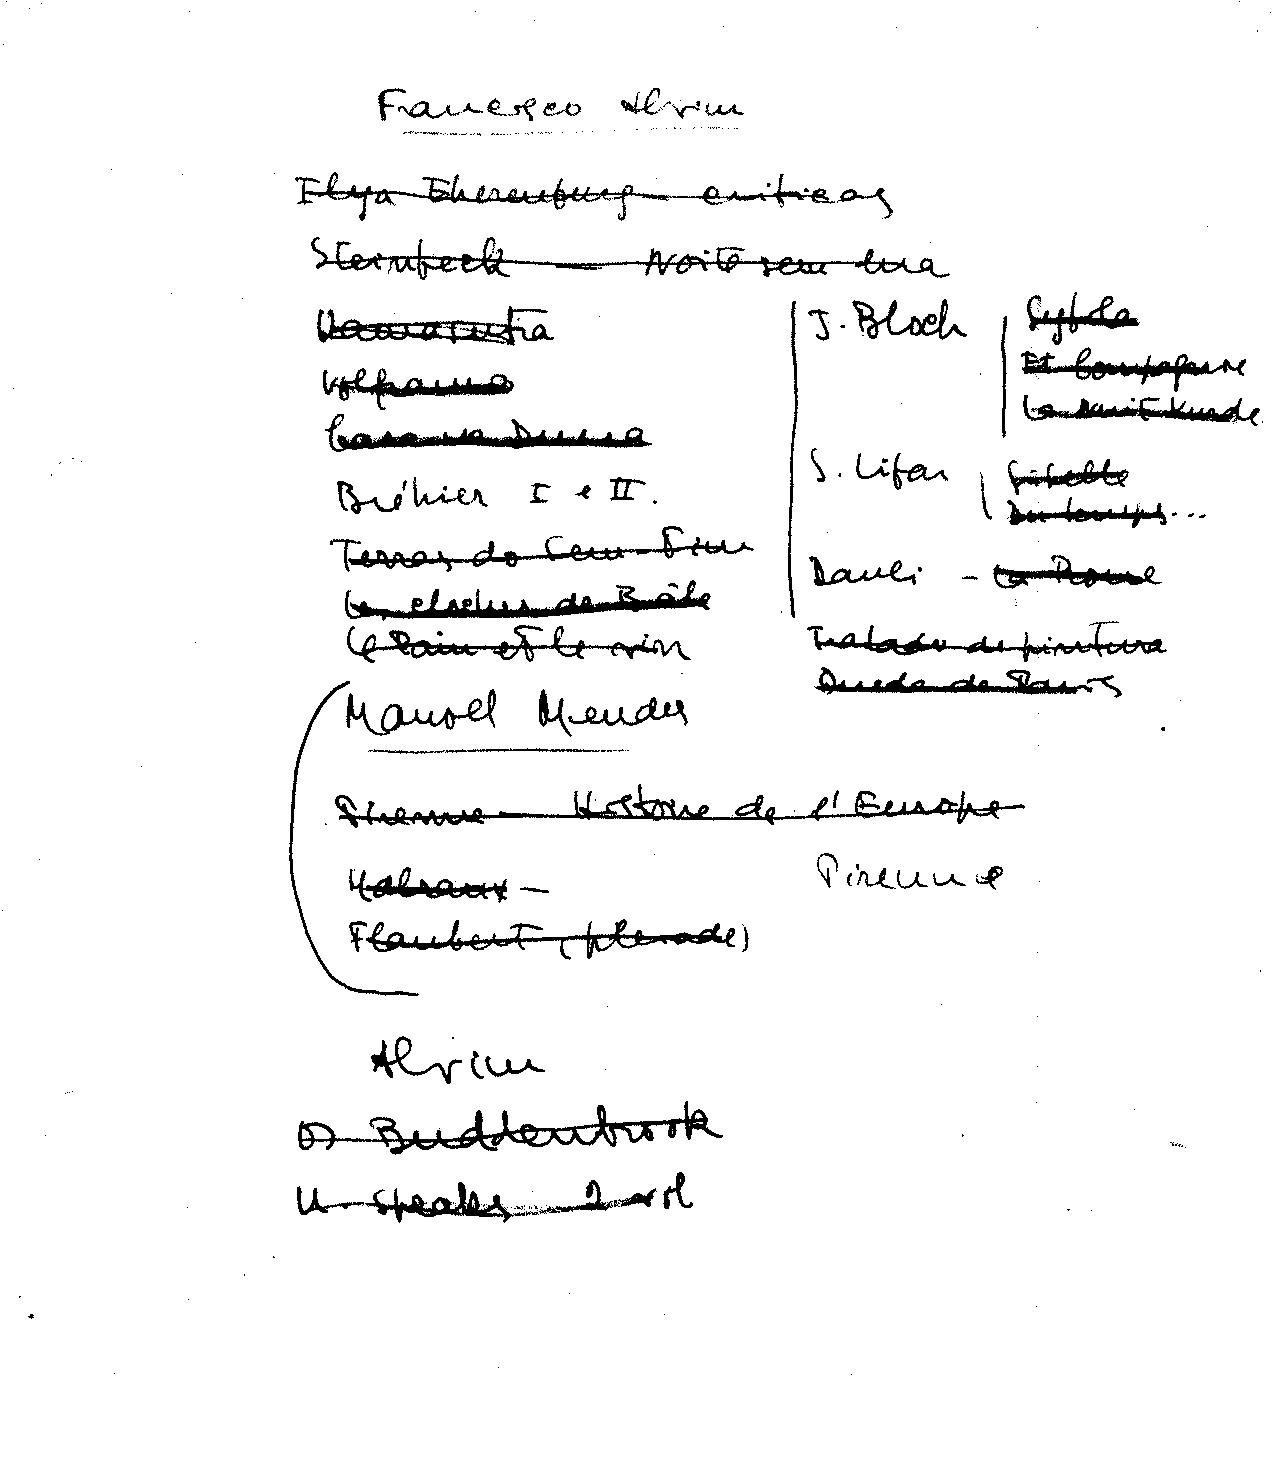 Francisco Alvim
Ilya Eherenburg – criticas
Steinbeck — Noite sem lua
Kamasutra
Volpone
Casa na Duna
Bréhier I e II.
Terras do Sem-Fim
Les cloches de Bâle
Le Pain et le vin
J. Bloch
Sybilla
Et Compagnie
La Nuit Kurde
S. Lifar
Giselle
Du temps...
Dauli –
Tratado de pintura
Queda de Paris
Manoel Mendes
Pirenne – Histoire de l'Europe
Malraux – Pirenne
Flaubert (pleiade)
Alvim
Os Buddenbrook
U. Speaks 2 vol